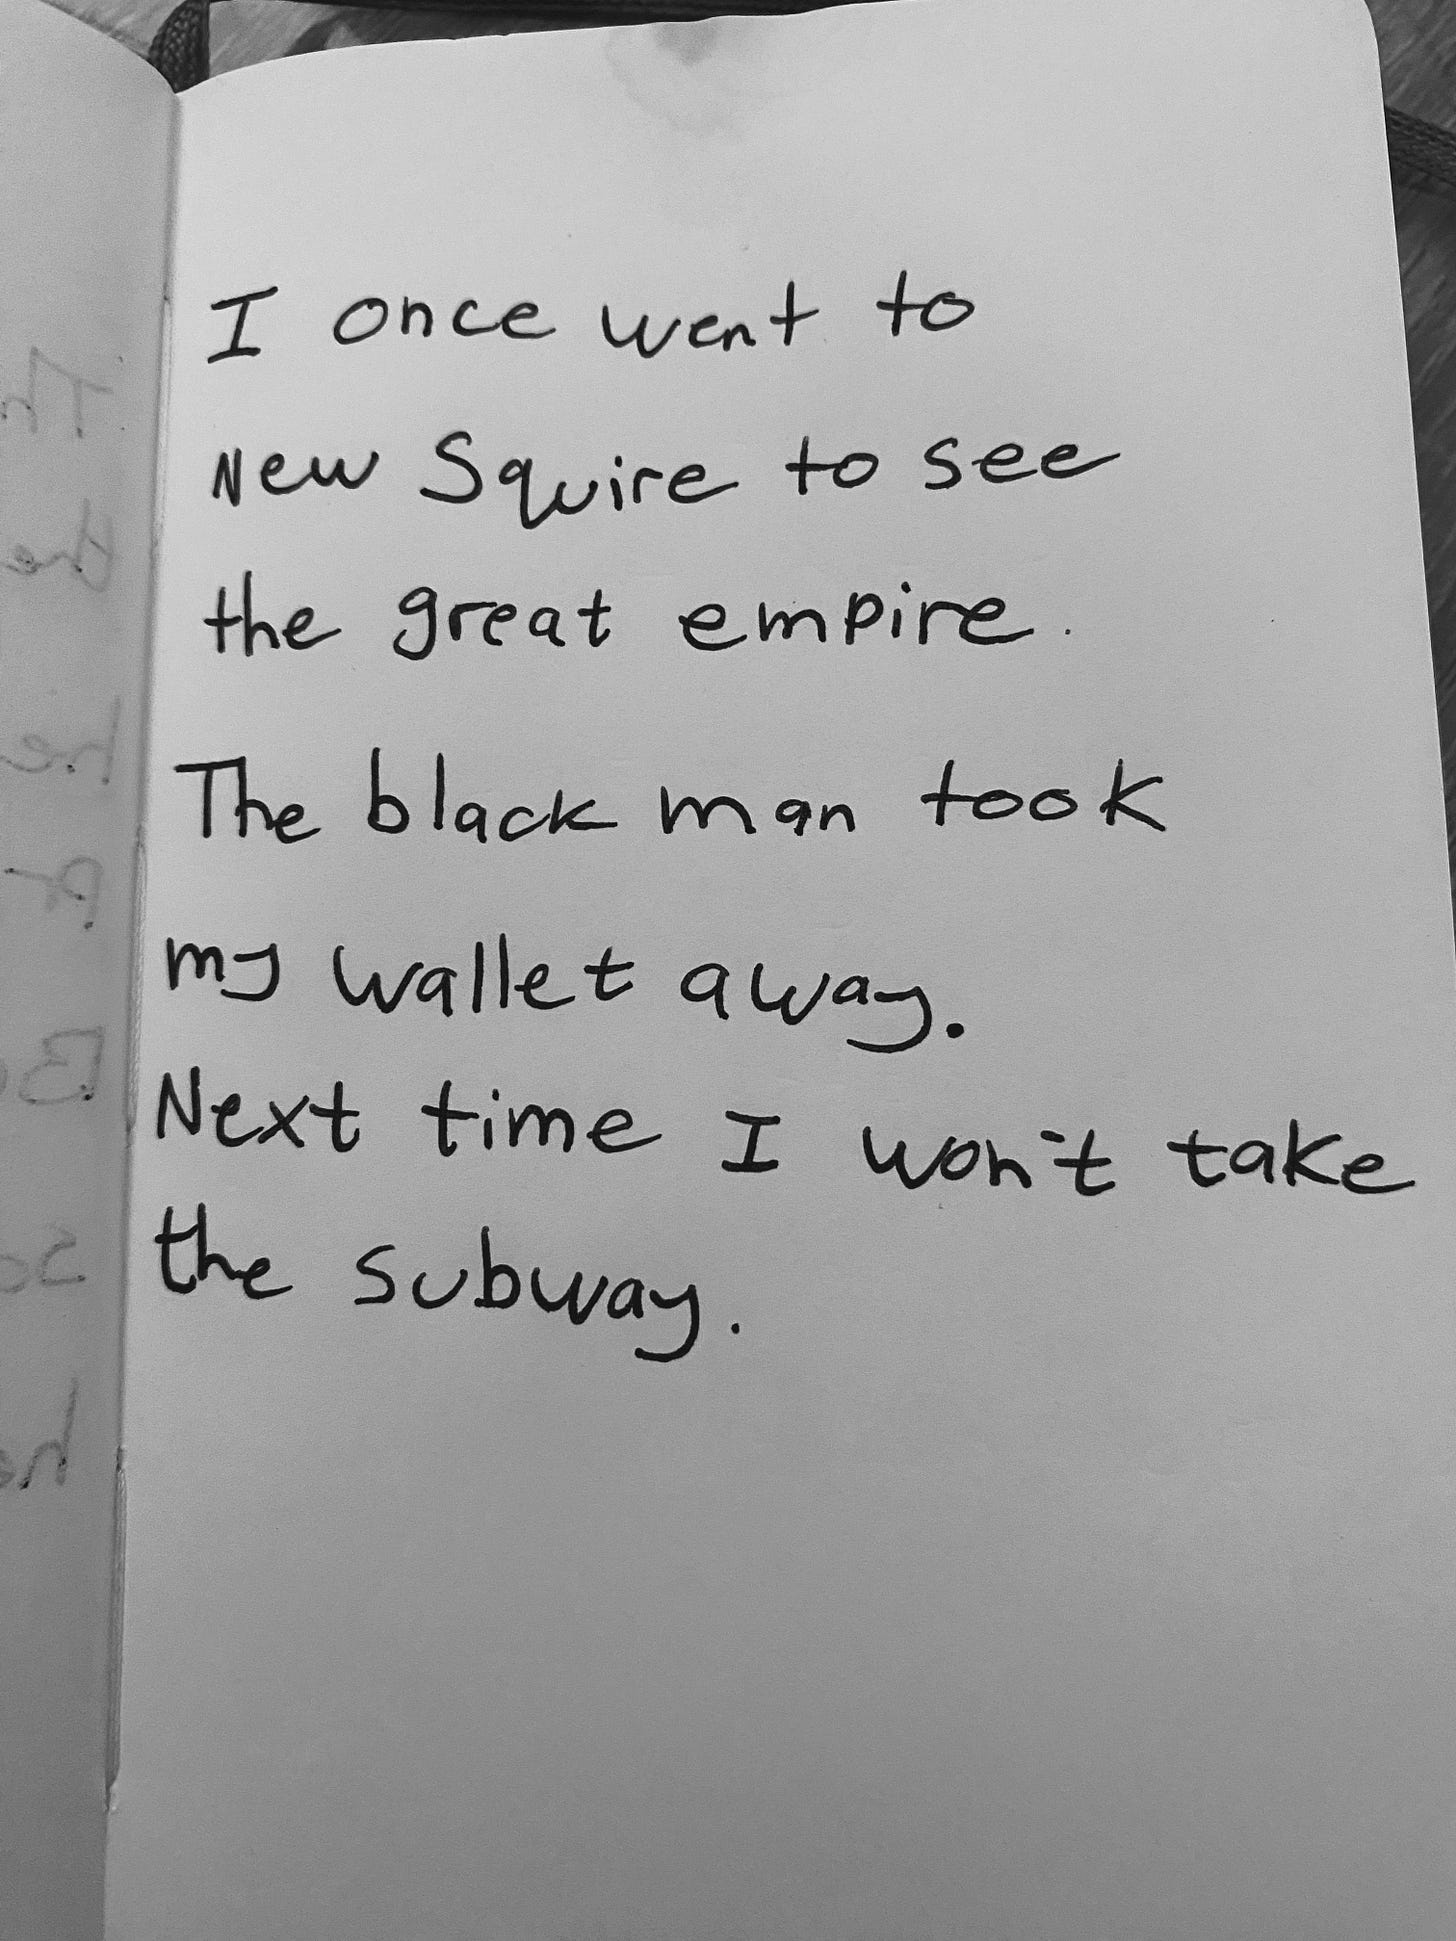 I once went to
New Squire to see
the great empire.
The black man took
my wallet away.
Next time I won't take
the subway.